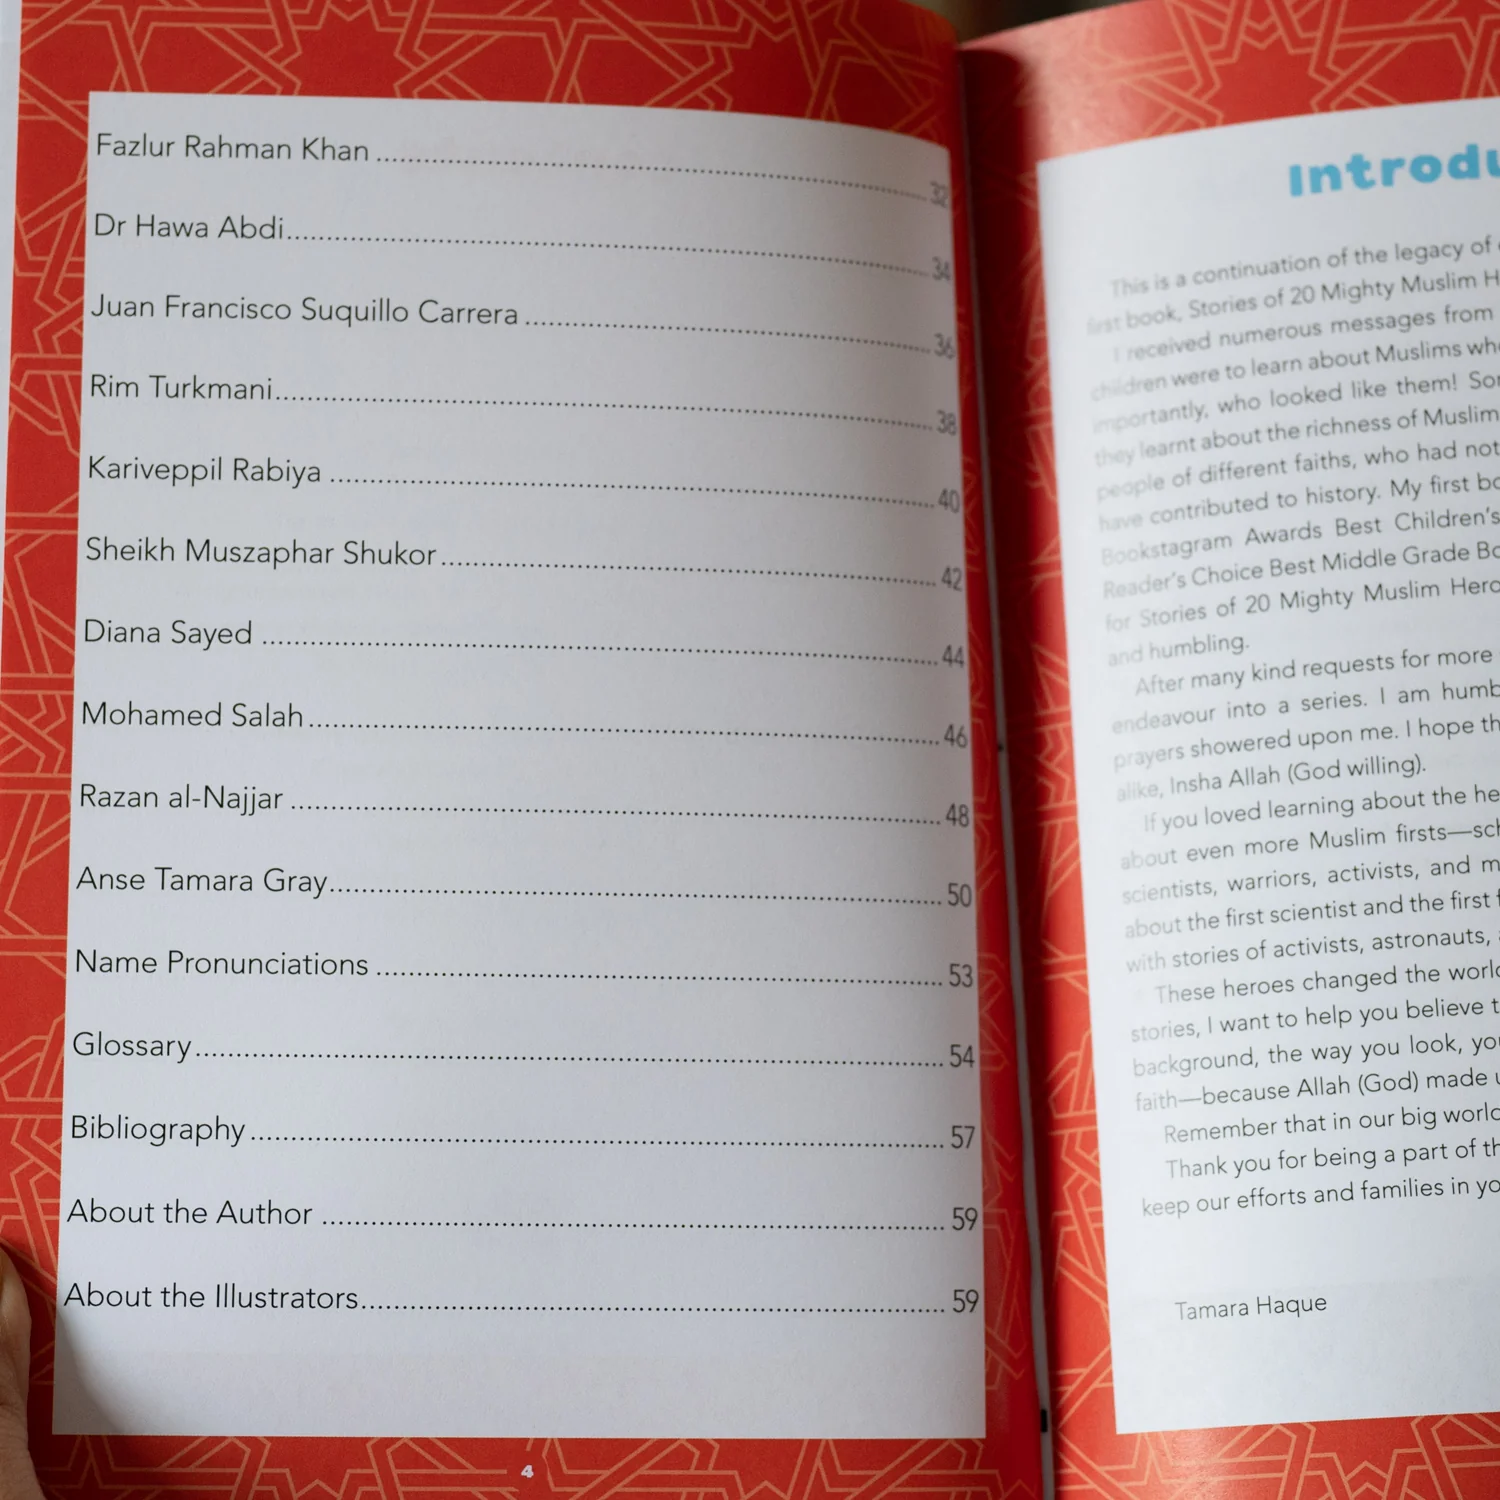 Fazlur Rahman Khan ........ 32
Dr Hawa Abdi........ 34
Juan Francisco Suquillo Carrera ........ 36
Rim Turkmani........ 38
Kariveppil Rabiya ........ 40
Sheikh Muszaphar Shukor........ 42
Diana Sayed ........ 44
Mohamed Salah........ 46
Razan al-Najjar ........ 48
Anse Tamara Gray........ 50
Name Pronunciations ........ 53
Glossary........ 54
Bibliography........ 57
About the Author ........ 59
About the Illustrators........ 59
4
Introdu
This is a continuation of the legacy of
first book, Stories of 20 Mighty Muslim H
I received numerous messages from
children were to learn about Muslims who
importantly, who looked like them! Son
they learnt about the richness of Muslim
people of different faiths, who had not
have contributed to history. My first bo
Bookstagram Awards Best Children's
Reader's Choice Best Middle Grade Bo
for Stories of 20 Mighty Muslim Hero
and humbling.
After many kind requests for more
endeavour into a series. I am humb
prayers showered upon me. I hope th
alike, Insha Allah (God willing).
If you loved learning about the he
about even more Muslim firsts—sch
scientists, warriors, activists, and m
about the first scientist and the first f
with stories of activists, astronauts,
These heroes changed the world
stories, I want to help you believe t
background, the way you look, you
faith—because Allah (God) made u
Remember that in our big world
Thank you for being a part of th
keep our efforts and families in yo
Tamara Haque